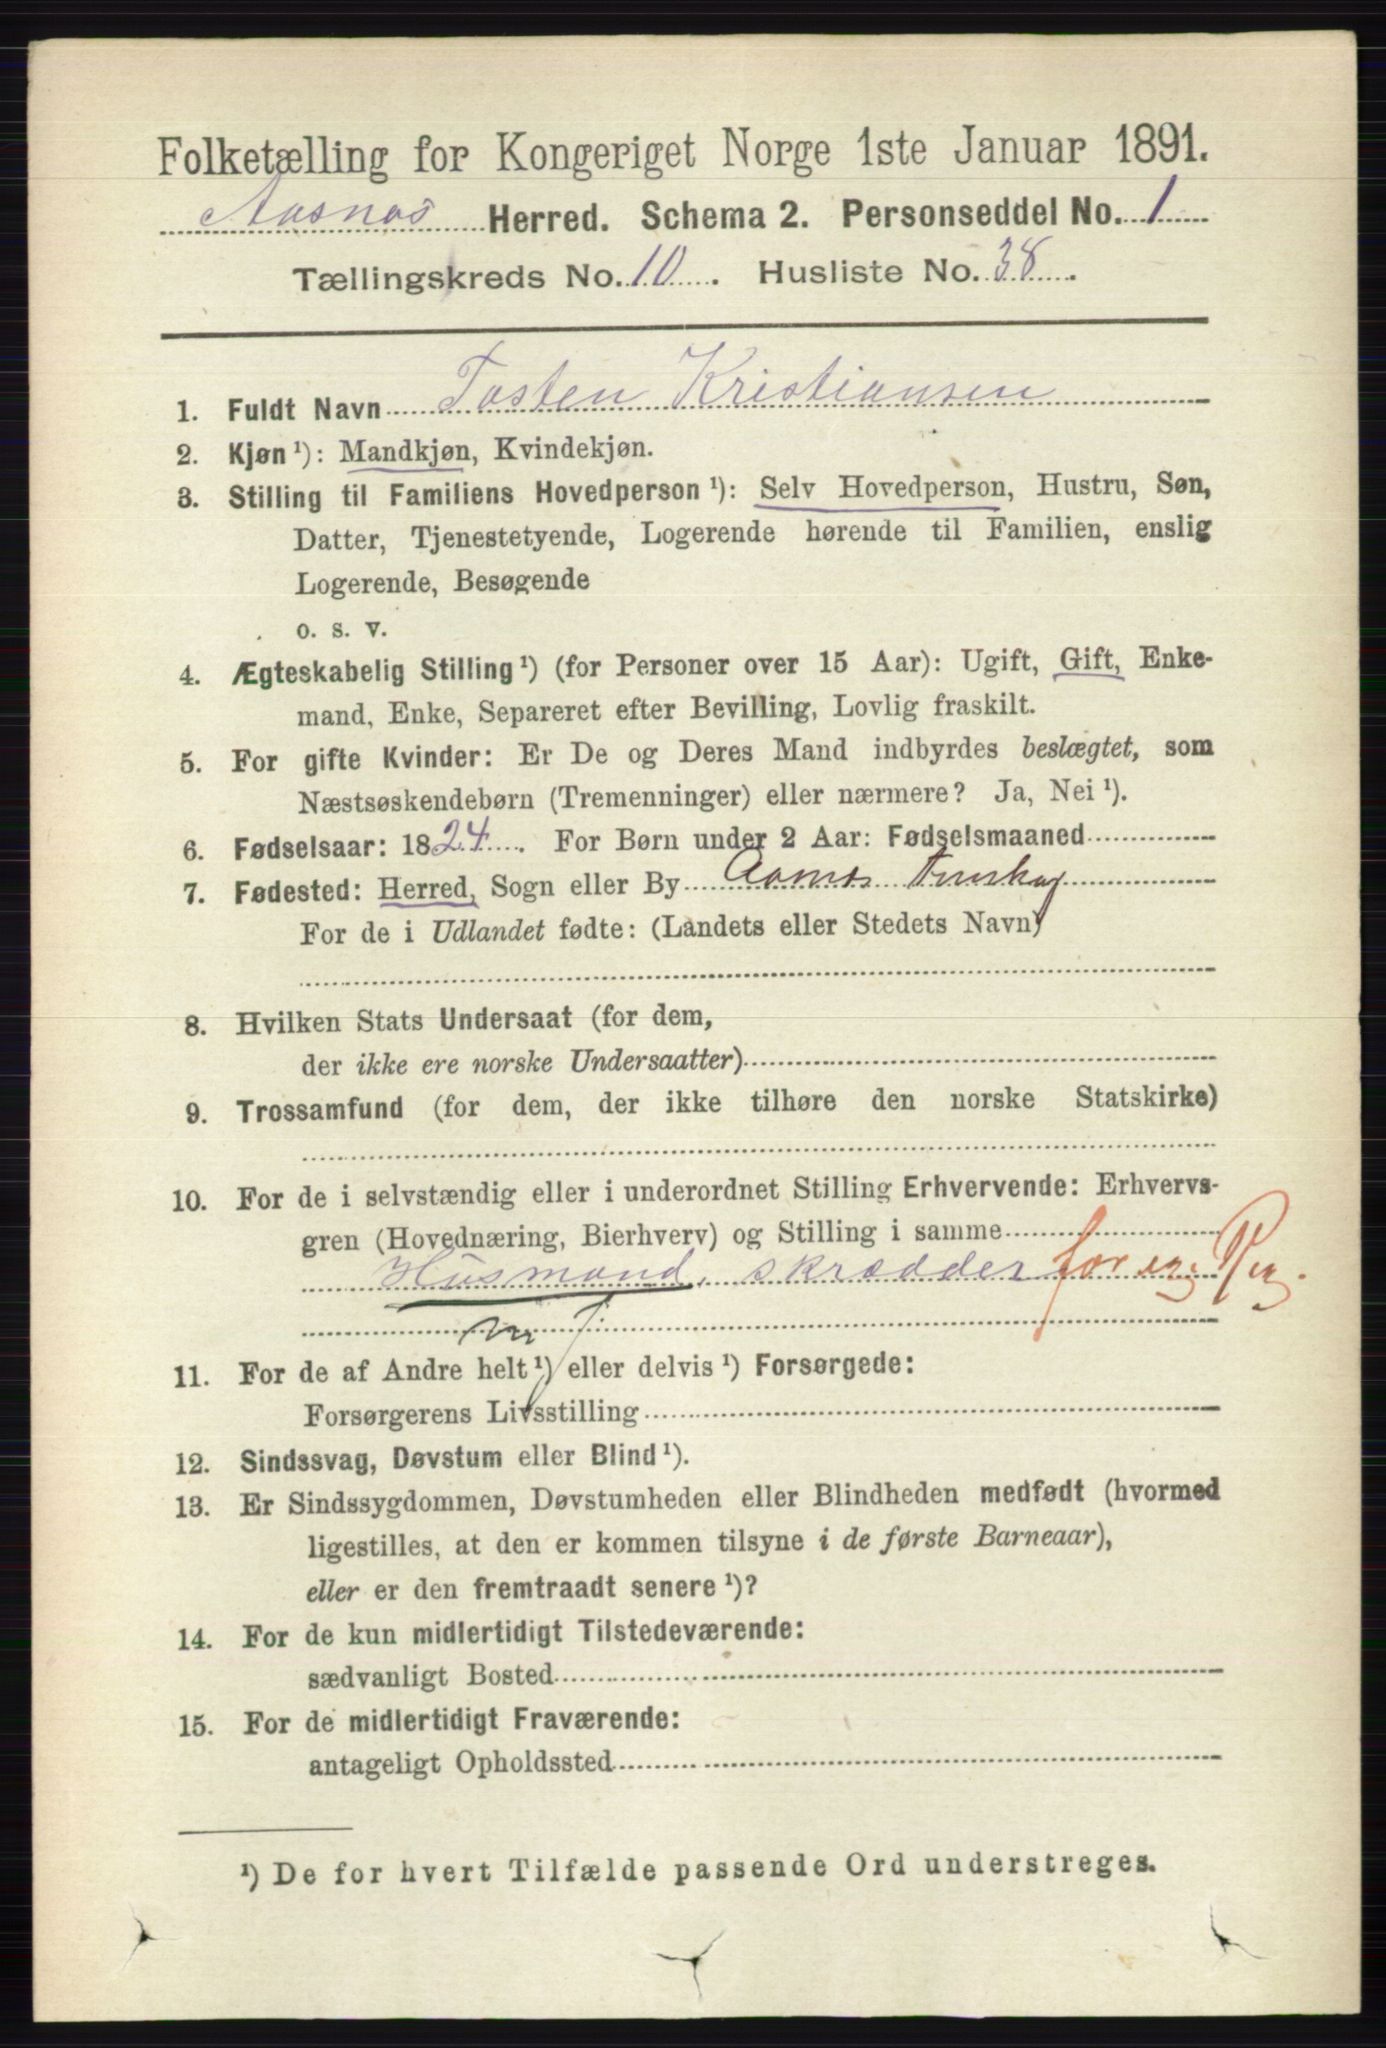 Folketælling for Kongeriget Norge 1ste Januar 1891.
Aasnæs Herred. Schema 2. Personseddel No. 1
Tællingskreds No. 10. Husliste No. 38.
1. Fuldt Navn Tosten Kristiansen
2. Kjøn ¹): Mandkjøn, Kvindekjøn.
3. Stilling til Familiens Hovedperson ¹): Selv Hovedperson, Hustru, Søn,
Datter, Tjenestetyende, Logerende hørende til Familien, enslig
Logerende, Besøgende
o. s. v.
4. Ægteskabelig Stilling ¹) (for Personer over 15 Aar): Ugift, Gift, Enke-
mand, Enke, Separeret efter Bevilling, Lovlig fraskilt.
5. For gifte Kvinder: Er De og Deres Mand indbyrdes beslægtet, som
Næstsøskendebørn (Tremenninger) eller nærmere? Ja, Nei ¹).
6. Fødselsaar: 1824. For Børn under 2 Aar: Fødselsmaaned
7. Fødested: Herred, Sogn eller By Aasnes Finskog
For de i Udlandet fødte: (Landets eller Stedets Navn)
8. Hvilken Stats Undersaat (for dem,
der ikke ere norske Undersaatter)
9. Trossamfund (for dem, der ikke tilhøre den norske Statskirke)
10. For de i selvstændig eller i underordnet Stilling Erhvervende: Erhvervs-
gren (Hovednæring, Bierhverv) og Stilling i samme
Husmand, skrædder for eg Reg.
11. For de af Andre helt ¹) eller delvis ¹) Forsørgede:
Forsørgerens Livsstilling
12. Sindssvag, Døvstum eller Blind ¹).
13. Er Sindssygdommen, Døvstumheden eller Blindheden medfødt (hvormed
ligestilles, at den er kommen tilsyne i de første Barneaar),
eller er den fremtraadt senere ¹)?
14. For de kun midlertidigt Tilstedeværende:
sædvanligt Bosted
15. For de midlertidigt Fraværende:
antageligt Opholdssted
¹) De for hvert Tilfælde passende Ord understreges.